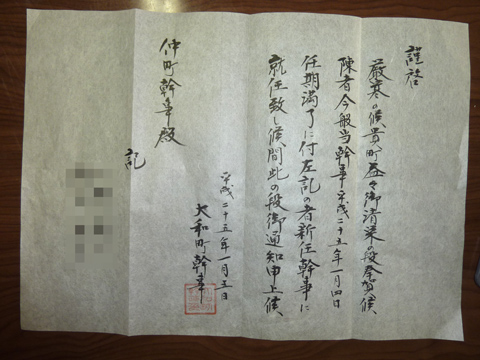 謹啓
厳寒の候貴町益々御清栄の段奉賀候
陳者今般当幹事平成二十五年一月四日
任期満了に付左記の者新任幹事に
就任致し候間此の段御通知申上候
平成二十五年一月五日
大和町幹事
仲町幹事殿
記